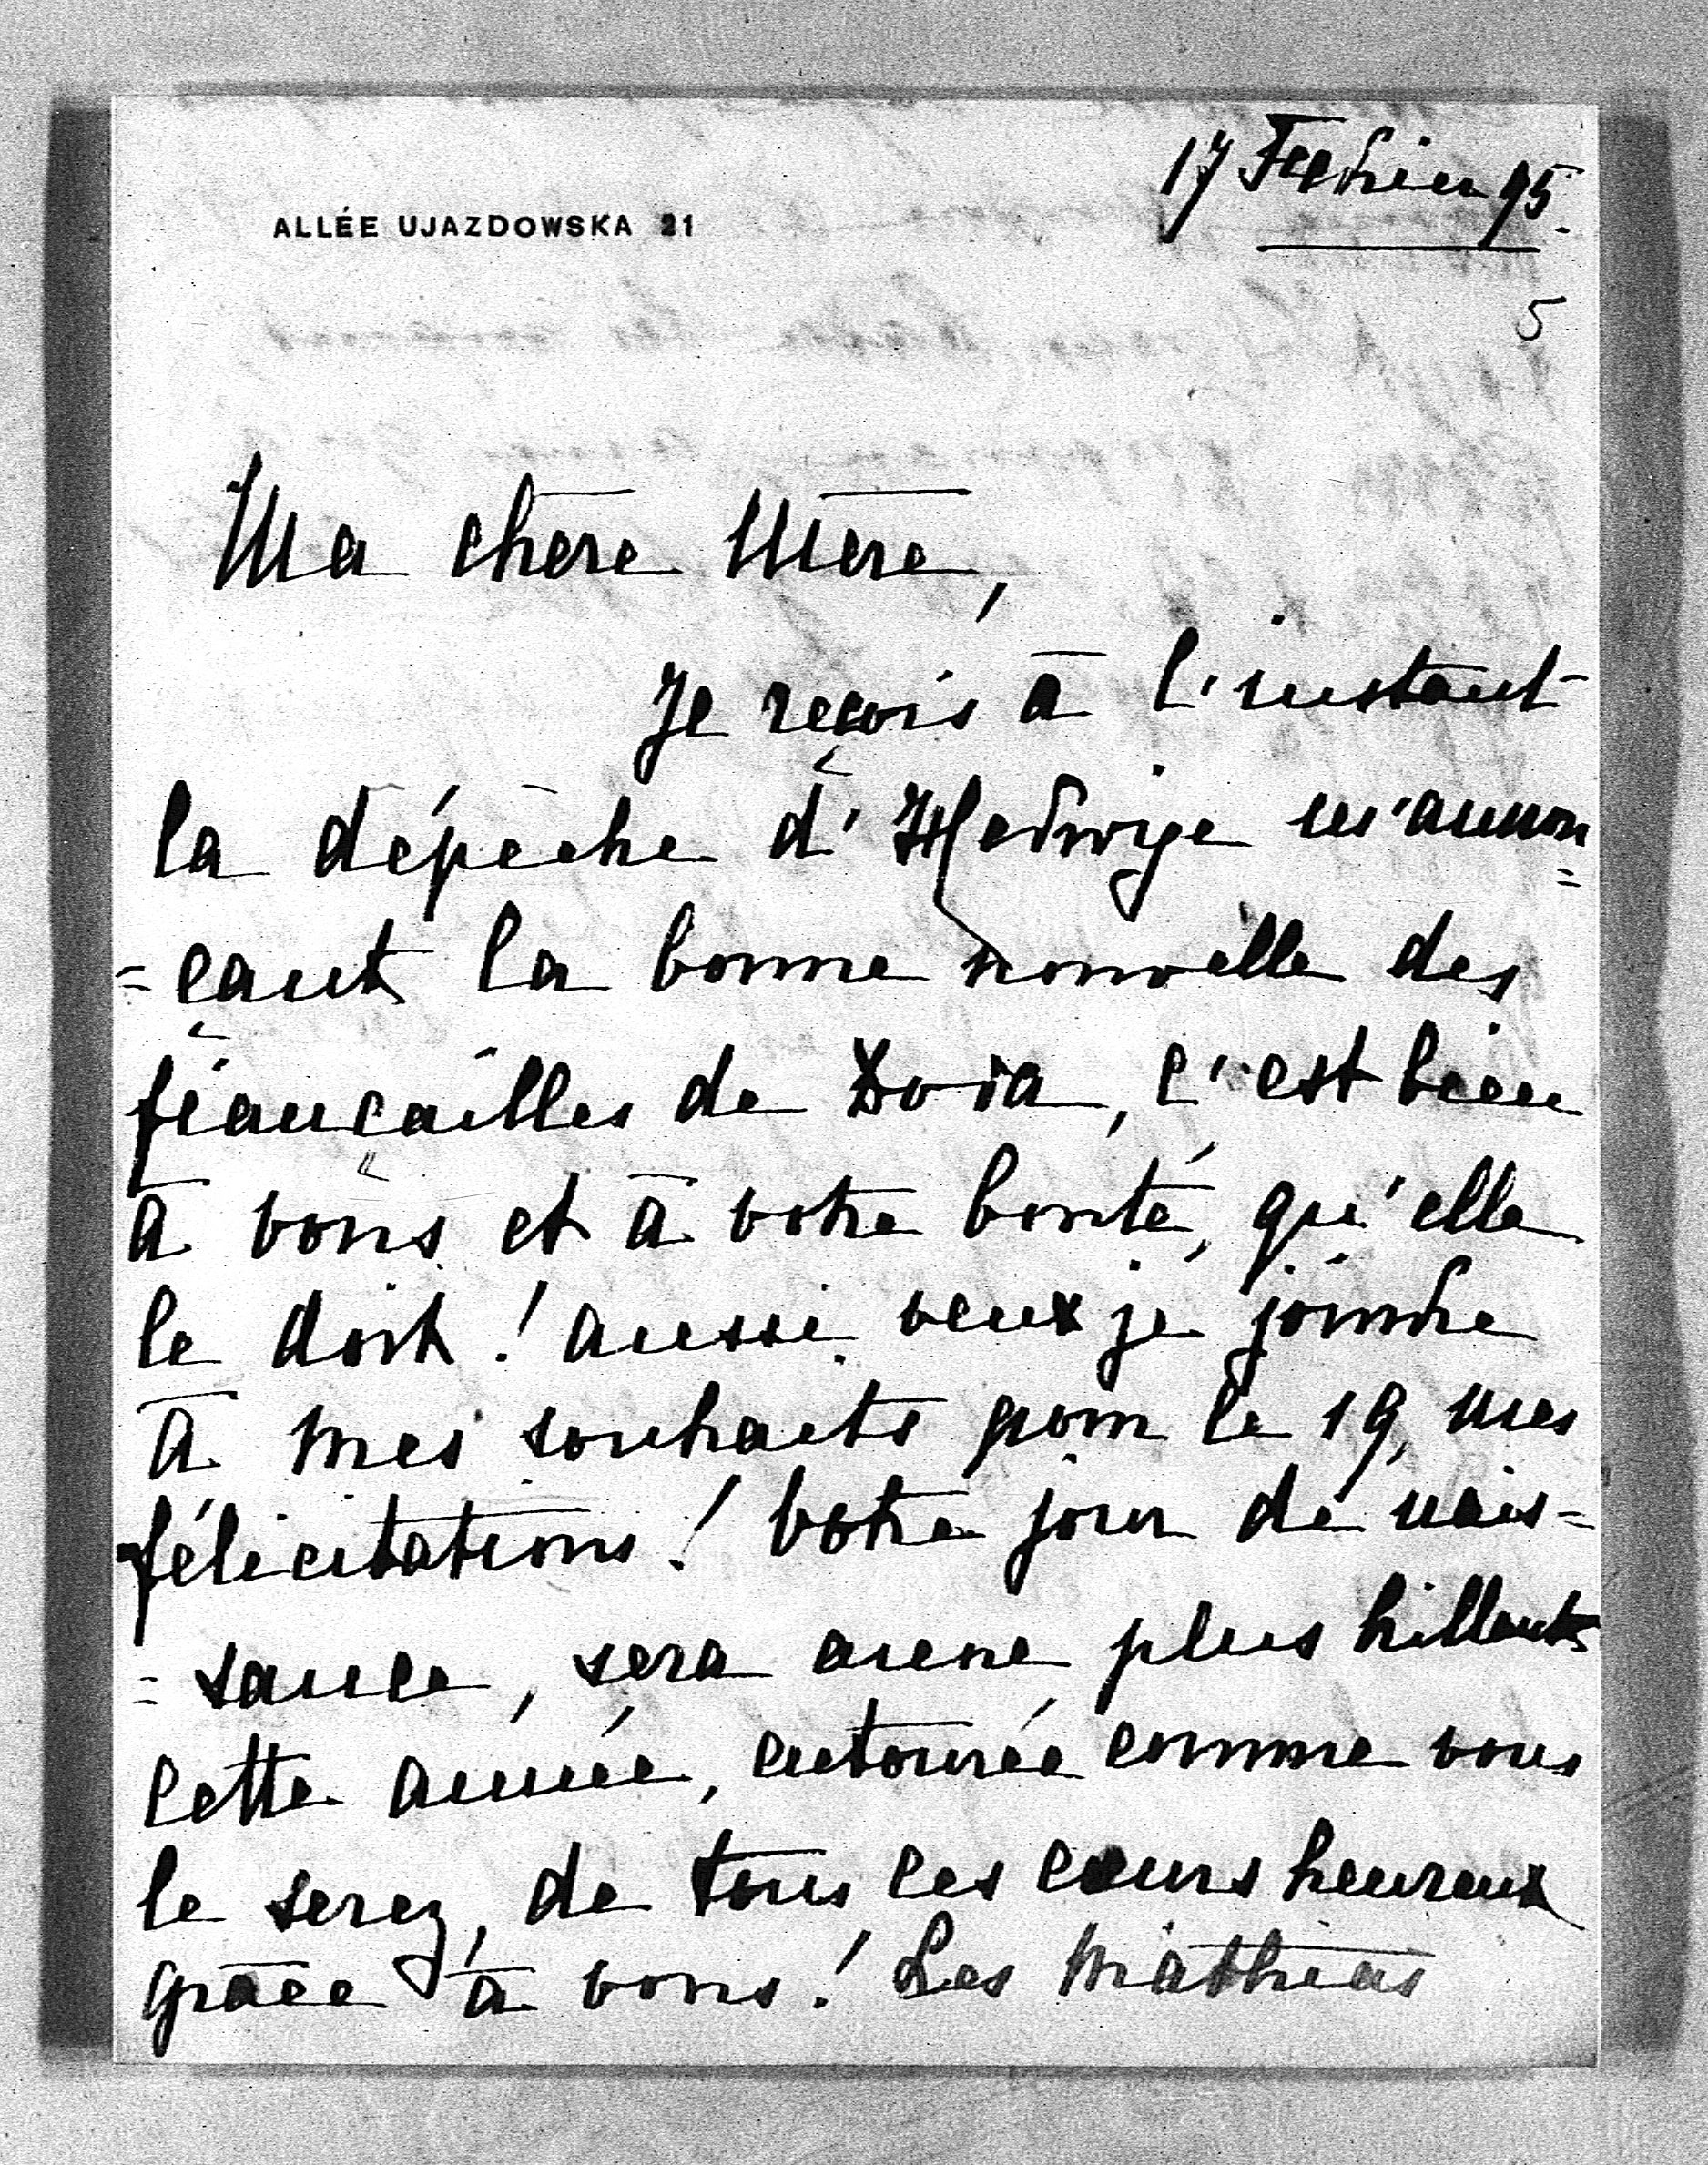 17 Fevrier 95.
ALLÉE UJAZDOWSKA 21
5
Ma chère Mère,
Je reçois à l'instant
la dépèche d'Hedwige m'annon
=çant la bonne nouvelle des
fiançailles de Zosia, c'est bien
à vous et à votre bonté, qu'elle
le doit! aussi veux je joindre
à mes souhaits pour le 19, mes
félicitations! Votre jour de nais=
=sance, sera encore plus brillant
cette année, entourée comme vous
le serez, de tous les cœurs heureux
grâce à vous! Les Mathias